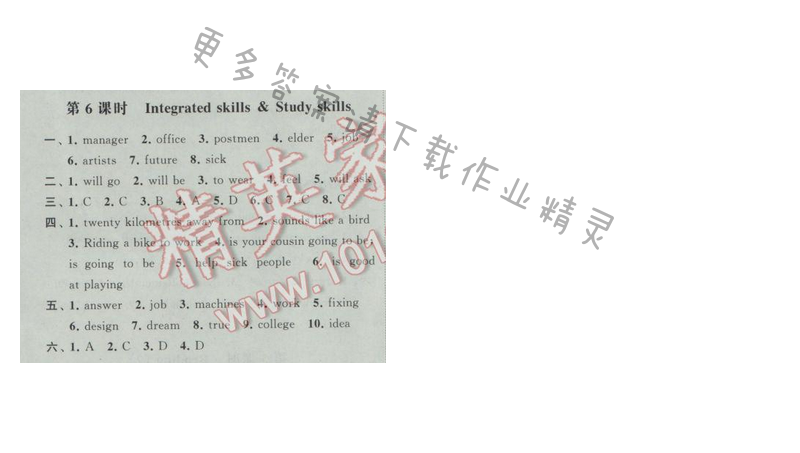 更多答案请下载作业精灵
第 6 课时 Integrated skills & Study skills
一、1. manager 2. office 3. postmen 4. elder 5. job
6. artists 7. future 8. sick
二、1. will go 2. will be 3. to wear 4. feel 5. will ask
三、1. C 2. C 3. B 4. A 5. D 6. C 7. C 8. C
四、1. twenty kilometres away from 2. sounds like a bird
3. Riding a bike to work 4. is your cousin going to be;
is going to be 5. help sick people 6. is good
at playing
五、1. answer 2. job 3. machines 4. work 5. fixing
6. design 7. dream 8. true 9. college 10. idea
六、1. A 2. C 3. D 4. D
精英家
www.101